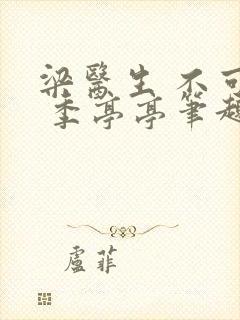 梁醫生 不可
季亭亭筆趣
盧菲